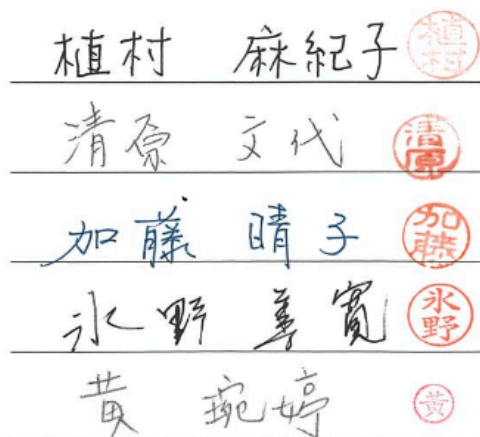 植村 麻紀子 植村
清原 文代 清原
加藤 晴子 加藤
氷野 善寛 氷野
黄 琬婷 黄